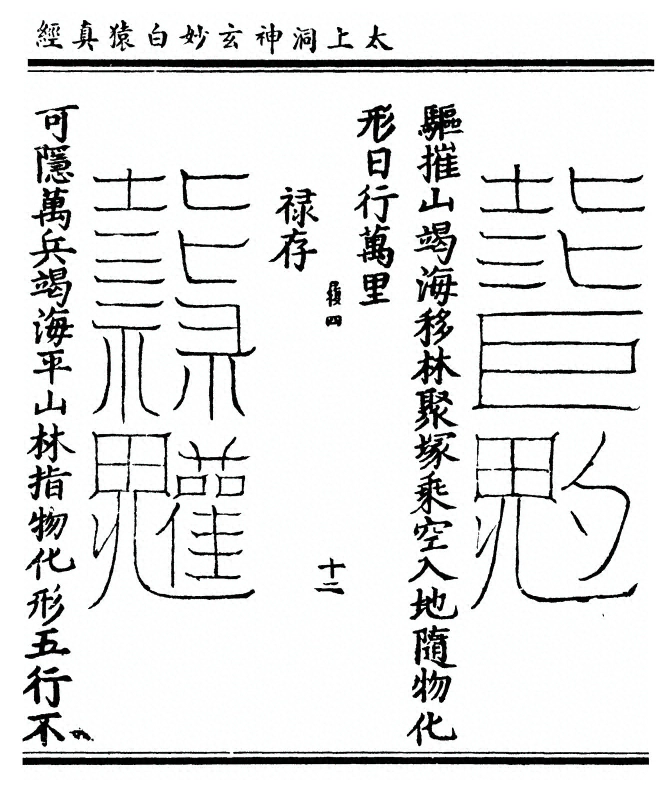 太上洞神玄妙白猿真經
驅摧山竭海移林聚塚乘空入地隨物化
形日行萬里
四
禄存
十二
可隱萬兵竭海平山林指物化形五行不